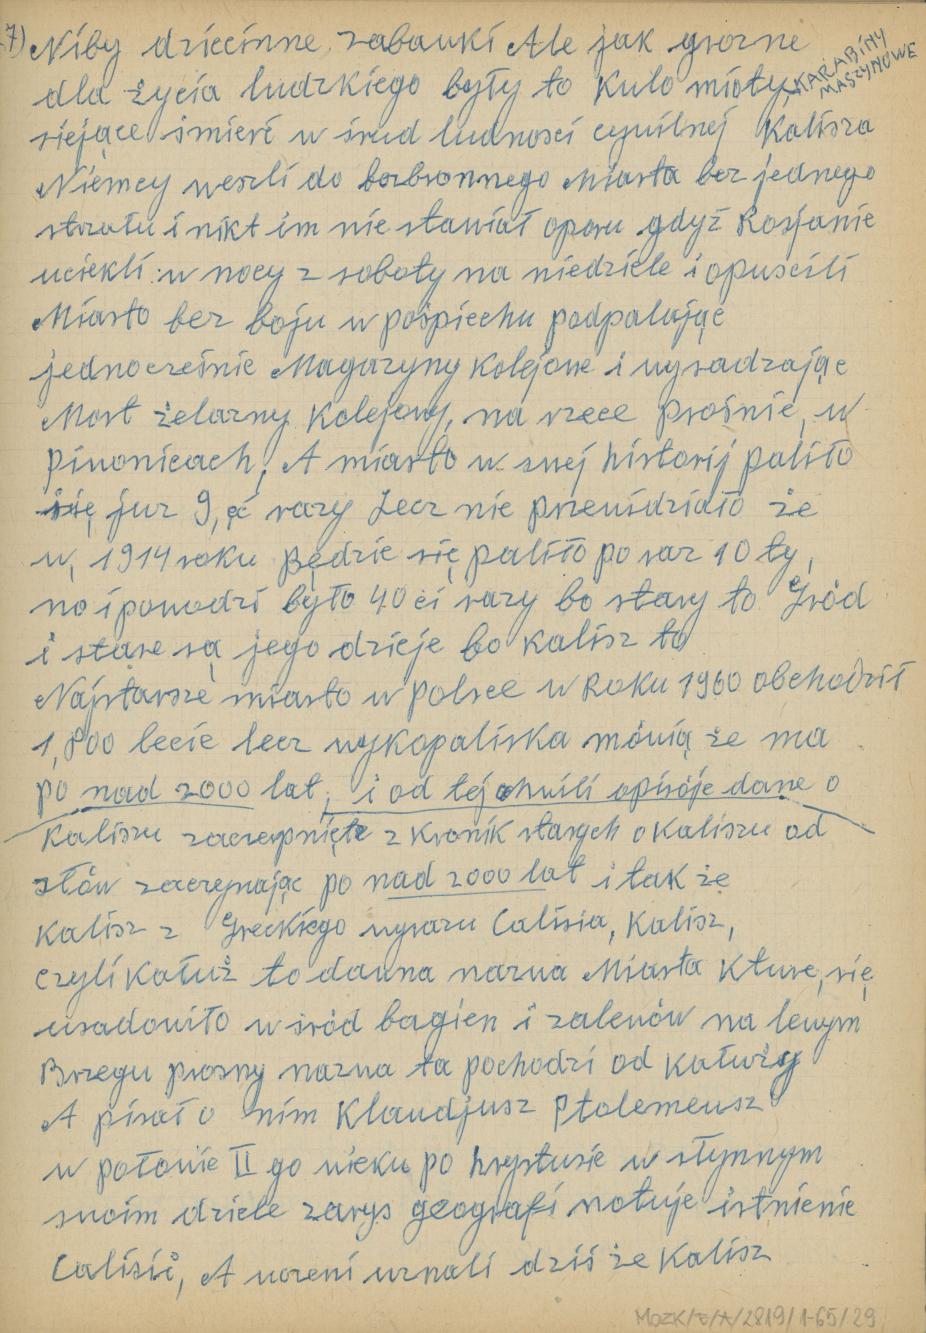 7) Niby dziecinne zabawki Ale jak grozne
dla życia ludzkiego były to Kulo mioty, KARABINY
MASZYNOWE
siejące śmierć w śrud ludności cywilnej Kalisza
Niemcy weszli do bezbronnego Miasta bez jednego
strzału i nikt im nie stawiał oporu gdyż Rosjanie
uciekli w nocy z soboty na niedziele i opuścili
Miasto bez boju w pośpiechu podpalając
jednocześnie Magazyny Kolejowe i wysadzając
Most żelazny Kolejowy, na rzece Prośnie, w
Piwonicach, A miasto w swej historij paliło
się juz 9,ęć razy Lecz nie przewidziało że
w, 1914 roku Będzie się paliło po raz 10 ty,
no i powodzi było 40 ci razy bo stary to Gród
i stare są jego dzieje bo Kalisz to
Najstarsze miasto w Polsce w Roku 1960 obchodził
1,800 lecie lecz wykopaliska mówią że ma
po nad 2000 lat, i od tej chwili opisóje dane o
Kaliszu zaczerpnięte z Kronik starych o Kaliszu od
słów zaczynając po nad 2000 lat i tak że
Kalisz z Greckiego wyrazu Calisia, Kalisz,
czyli Kałuż to dawna nazwa Miasta Kture, się
usadowiło w śród bagien i zalewów na lewym
Brzegu prosny nazwa ta pochodzi od Kałuży
A pisał o nim Klaudjusz Ptolemeusz
w połowie II go wieku po hrystusie w słynnym
swoim dziele zarys geografi notuje istnienie
Calisió, A uczeni uznali dziś że Kalisz
MOZK/E/A/2819/1-65/29